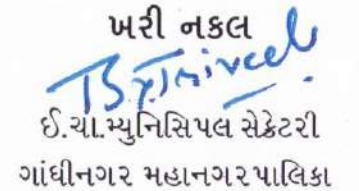 ખરી નકલ
ઈ.ચા.મ્યુનિસિપલ સેક્રેટરી
ગાંધીનગર મહાનગરપાલિકા